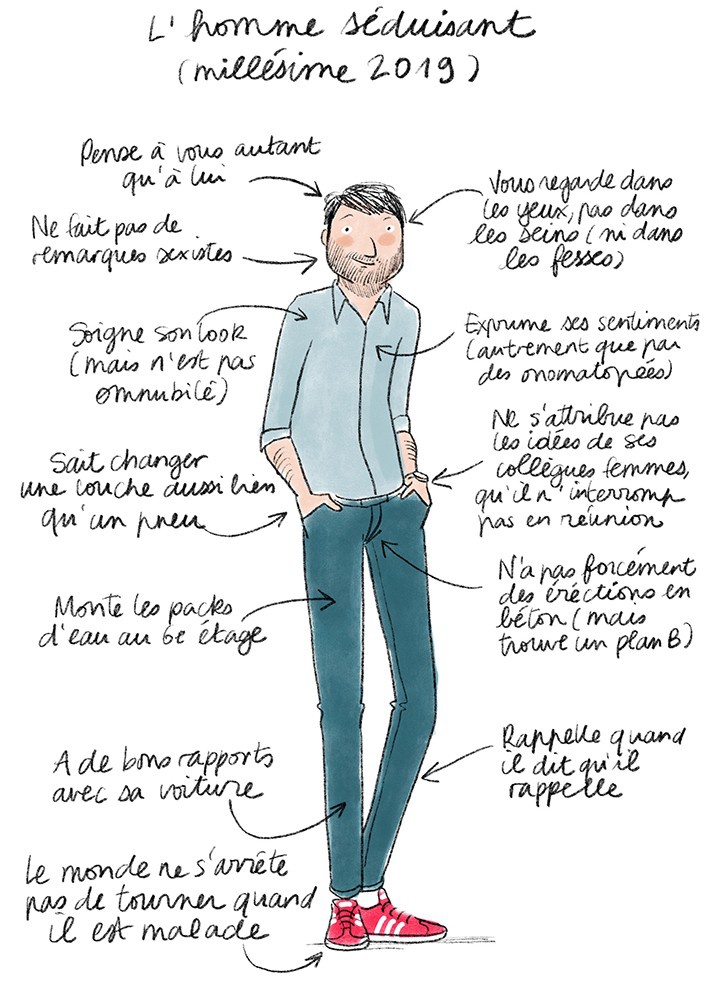 L'homme séduisant
(millésime 2019)
Pense à vous autant
qu'à lui
Ne fait pas de
remarques sexistes
Soigne son look
(mais n'est pas
omnubilé)
Sait changer
une couche aussi bien
qu'un pneu
Monte les packs
d'eau au 6e étage
A de bons rapports
avec sa voiture
Le monde ne s'arrête
pas de tourner quand
il est malade
Vous regarde dans
les yeux, pas dans
les seins (ni dans
les fesses)
Exprime ses sentiments
(autrement que par
des onomatopées)
Ne s'attribue pas
les idées de ses
collègues femmes,
qu'il n'interromp
pas en réunion
N'a pas forcément
des érections en
béton (mais
trouve un plan B)
Rappelle quand
il dit qu'il
rappelle